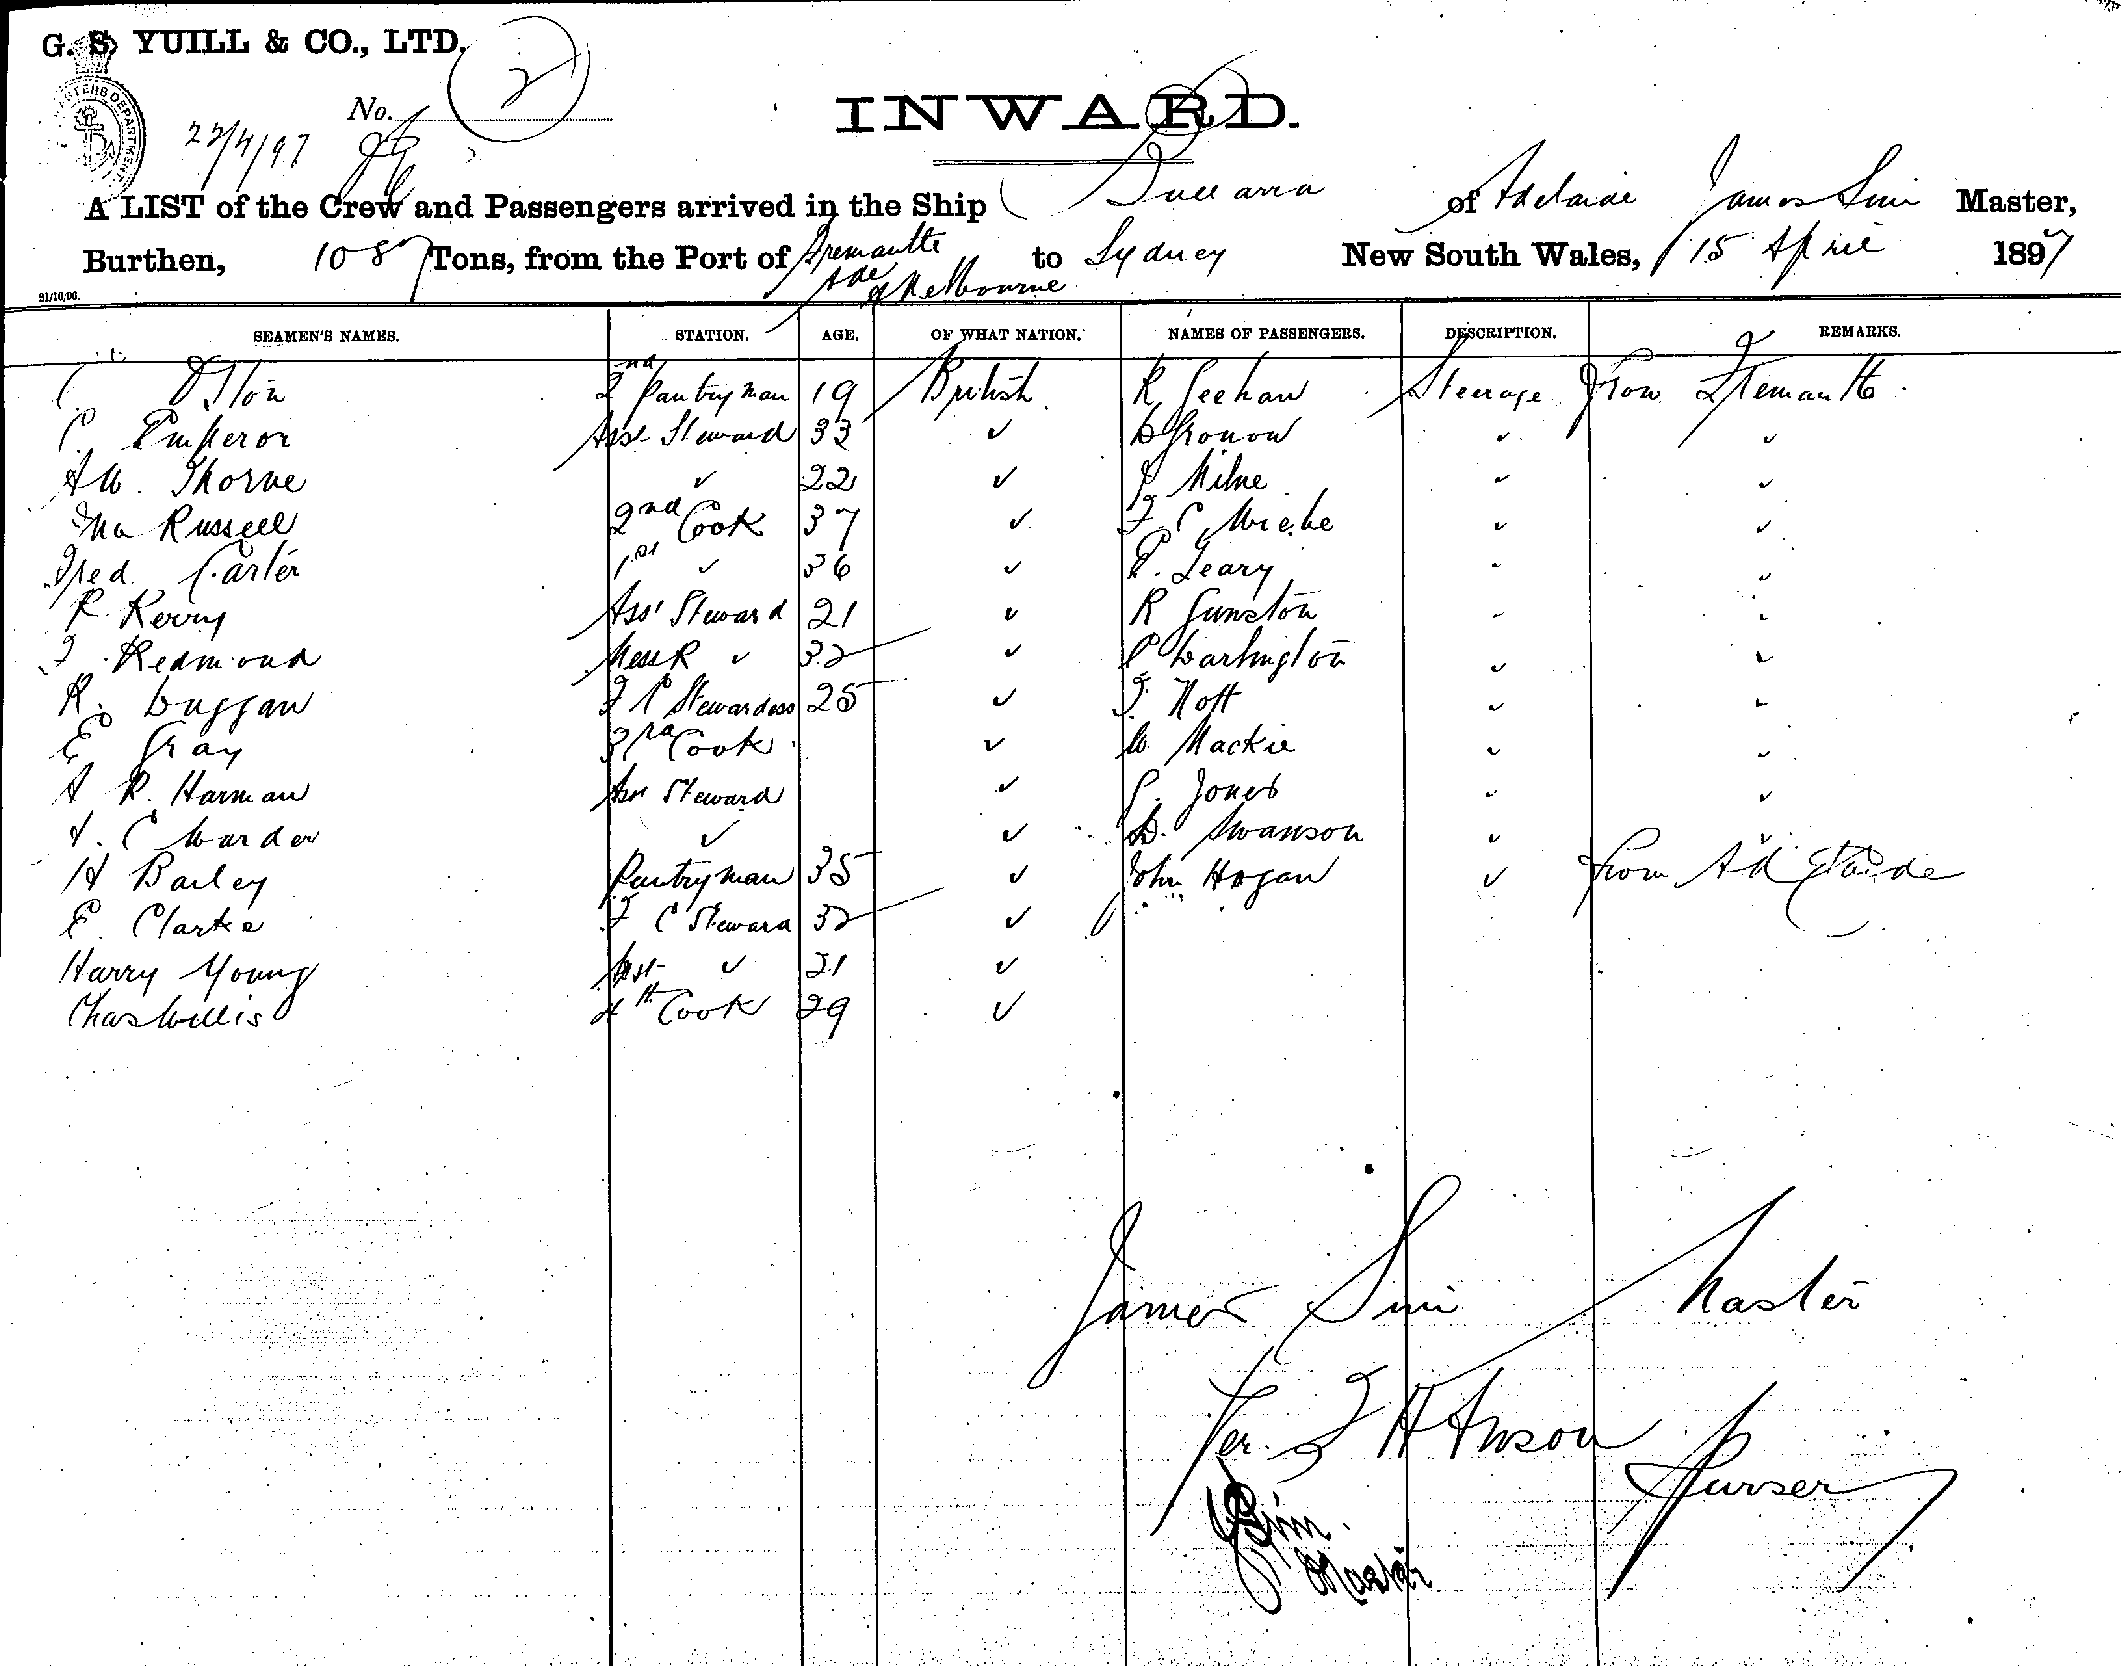 G. S. YUILL & CO., LTD.
2
No.
INWARD.
22/4/97
A LIST of the Crew and Passengers arrived in the Ship Bullarra of Adelaide James Sim Master,
Burthen, 1087 Tons, from the Port of Fremantle Ade & Melbourne to Sydney New South Wales, 15 April 1897
21/10/96.
SEAMEN'S NAMES. STATION. AGE. OF WHAT NATION. NAMES OF PASSENGERS. DESCRIPTION. REMARKS.
C 2nd Pantryman 19 British R Geehan Steerage From Fremantle
C. Emperor Asst Steward 33 ✓ D Gronow ✓ ✓
A W. Thorne ✓ 22 ✓ J Milne ✓ ✓
Russell 2nd Cook 37 ✓ F C Wiebe ✓ ✓
Fred. Carter 1st ✓ 36 ✓ P. Leary ✓ ✓
R. Kerry Asst Steward 21 ✓ R Gunston ✓ ✓
F. Redmond Mess R ✓ 32 ✓ C Darlington ✓ ✓
R. Duggan F C Stewardess 25 ✓ F. Nott ✓ ✓
E Gray 3rd Cook ✓ W. Mackie ✓ ✓
A R. Harman Asst Steward ✓ G. Jones ✓ ✓
A. C Warder ✓ ✓ D. Swanson ✓ ✓
H Bailey Pantryman 35 ✓ John Hogan ✓ From Adelaide
E. Clarke F C Steward 32 ✓
Harry Young Asst ✓ 21 ✓
Chas Willis 4th Cook 29 ✓
James Sim Master
Per. F H Anson
Purser
J Sim.
Master